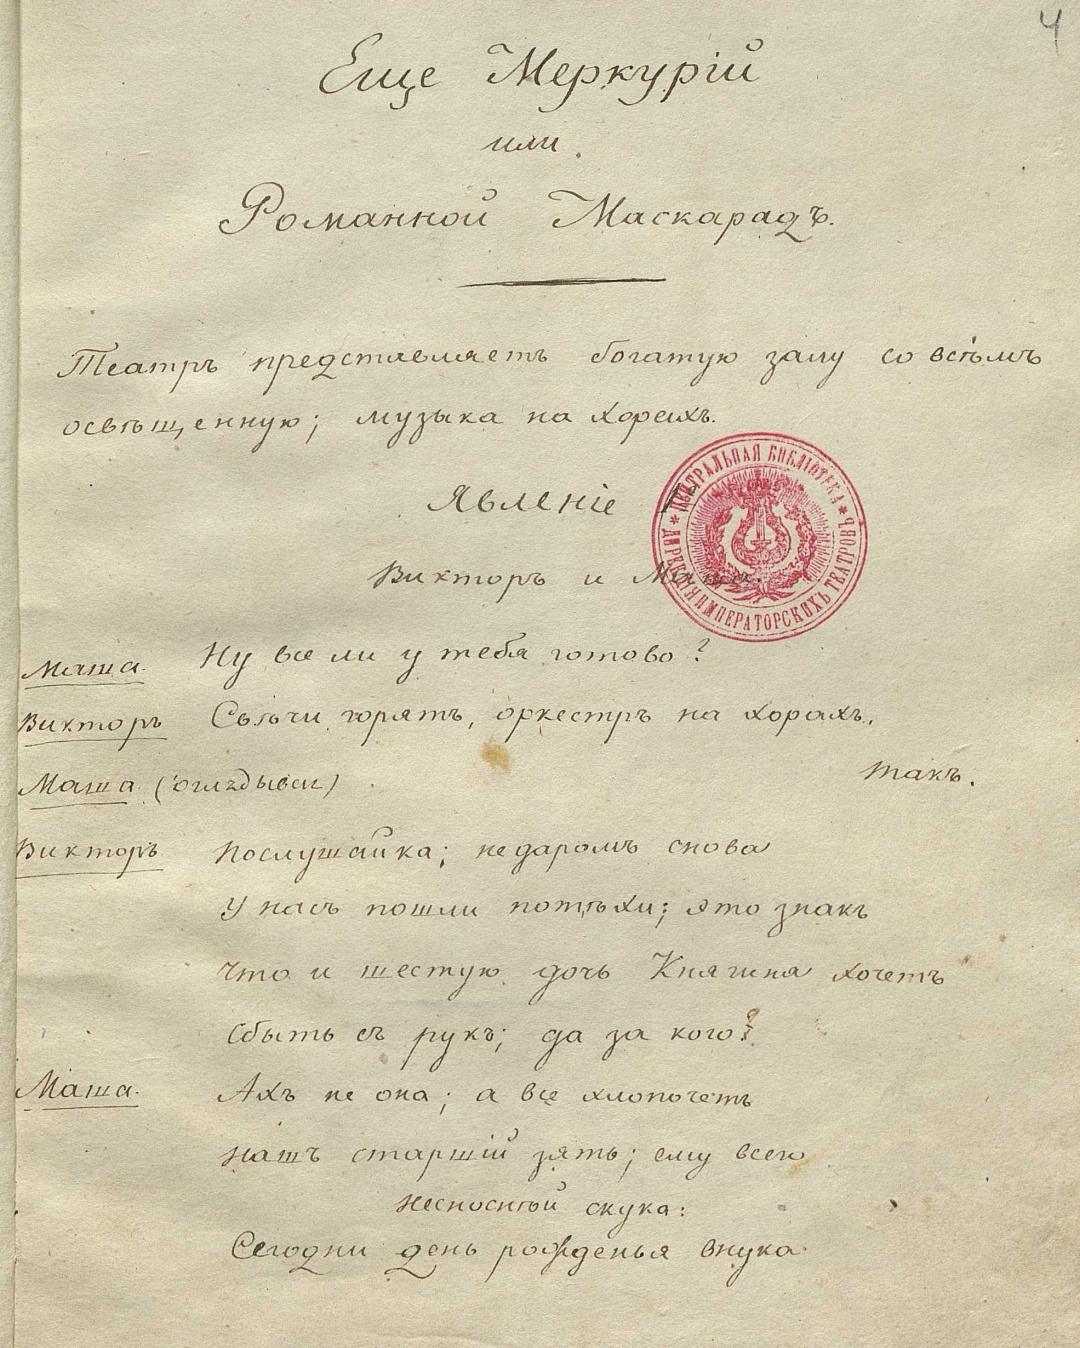 4
Еще Меркурій
или
Романной Маскарадъ.
Театръ представляетъ богатую залу со всѣмъ
освѣщенную; музыка на хорахъ.
Явленіе I
ЦЕНТРАЛЬНАЯ БИБЛІОТЕКА * ДИРЕКЦІЯ ИМПЕРАТОРСКИХЪ ТЕАТРОВЪ *
Викторъ и Маша.
Маша. Ну все ли у тебя готово?
Викторъ Свѣчи горятъ, оркестръ на хорахъ.
Маша (оглѣдывая) такъ.
Викторъ Послушайка; недаромъ снова
У насъ пошли потѣхи; это знакъ
Что и шестую дочь Княгиня хочетъ
Сбыть съ рукъ; да за кого?
Маша. Ахъ не она; а все хлопочетъ
Нашъ старшій зять; ему всего
Несноснѣй скука:
Сегодни день рожденья внука